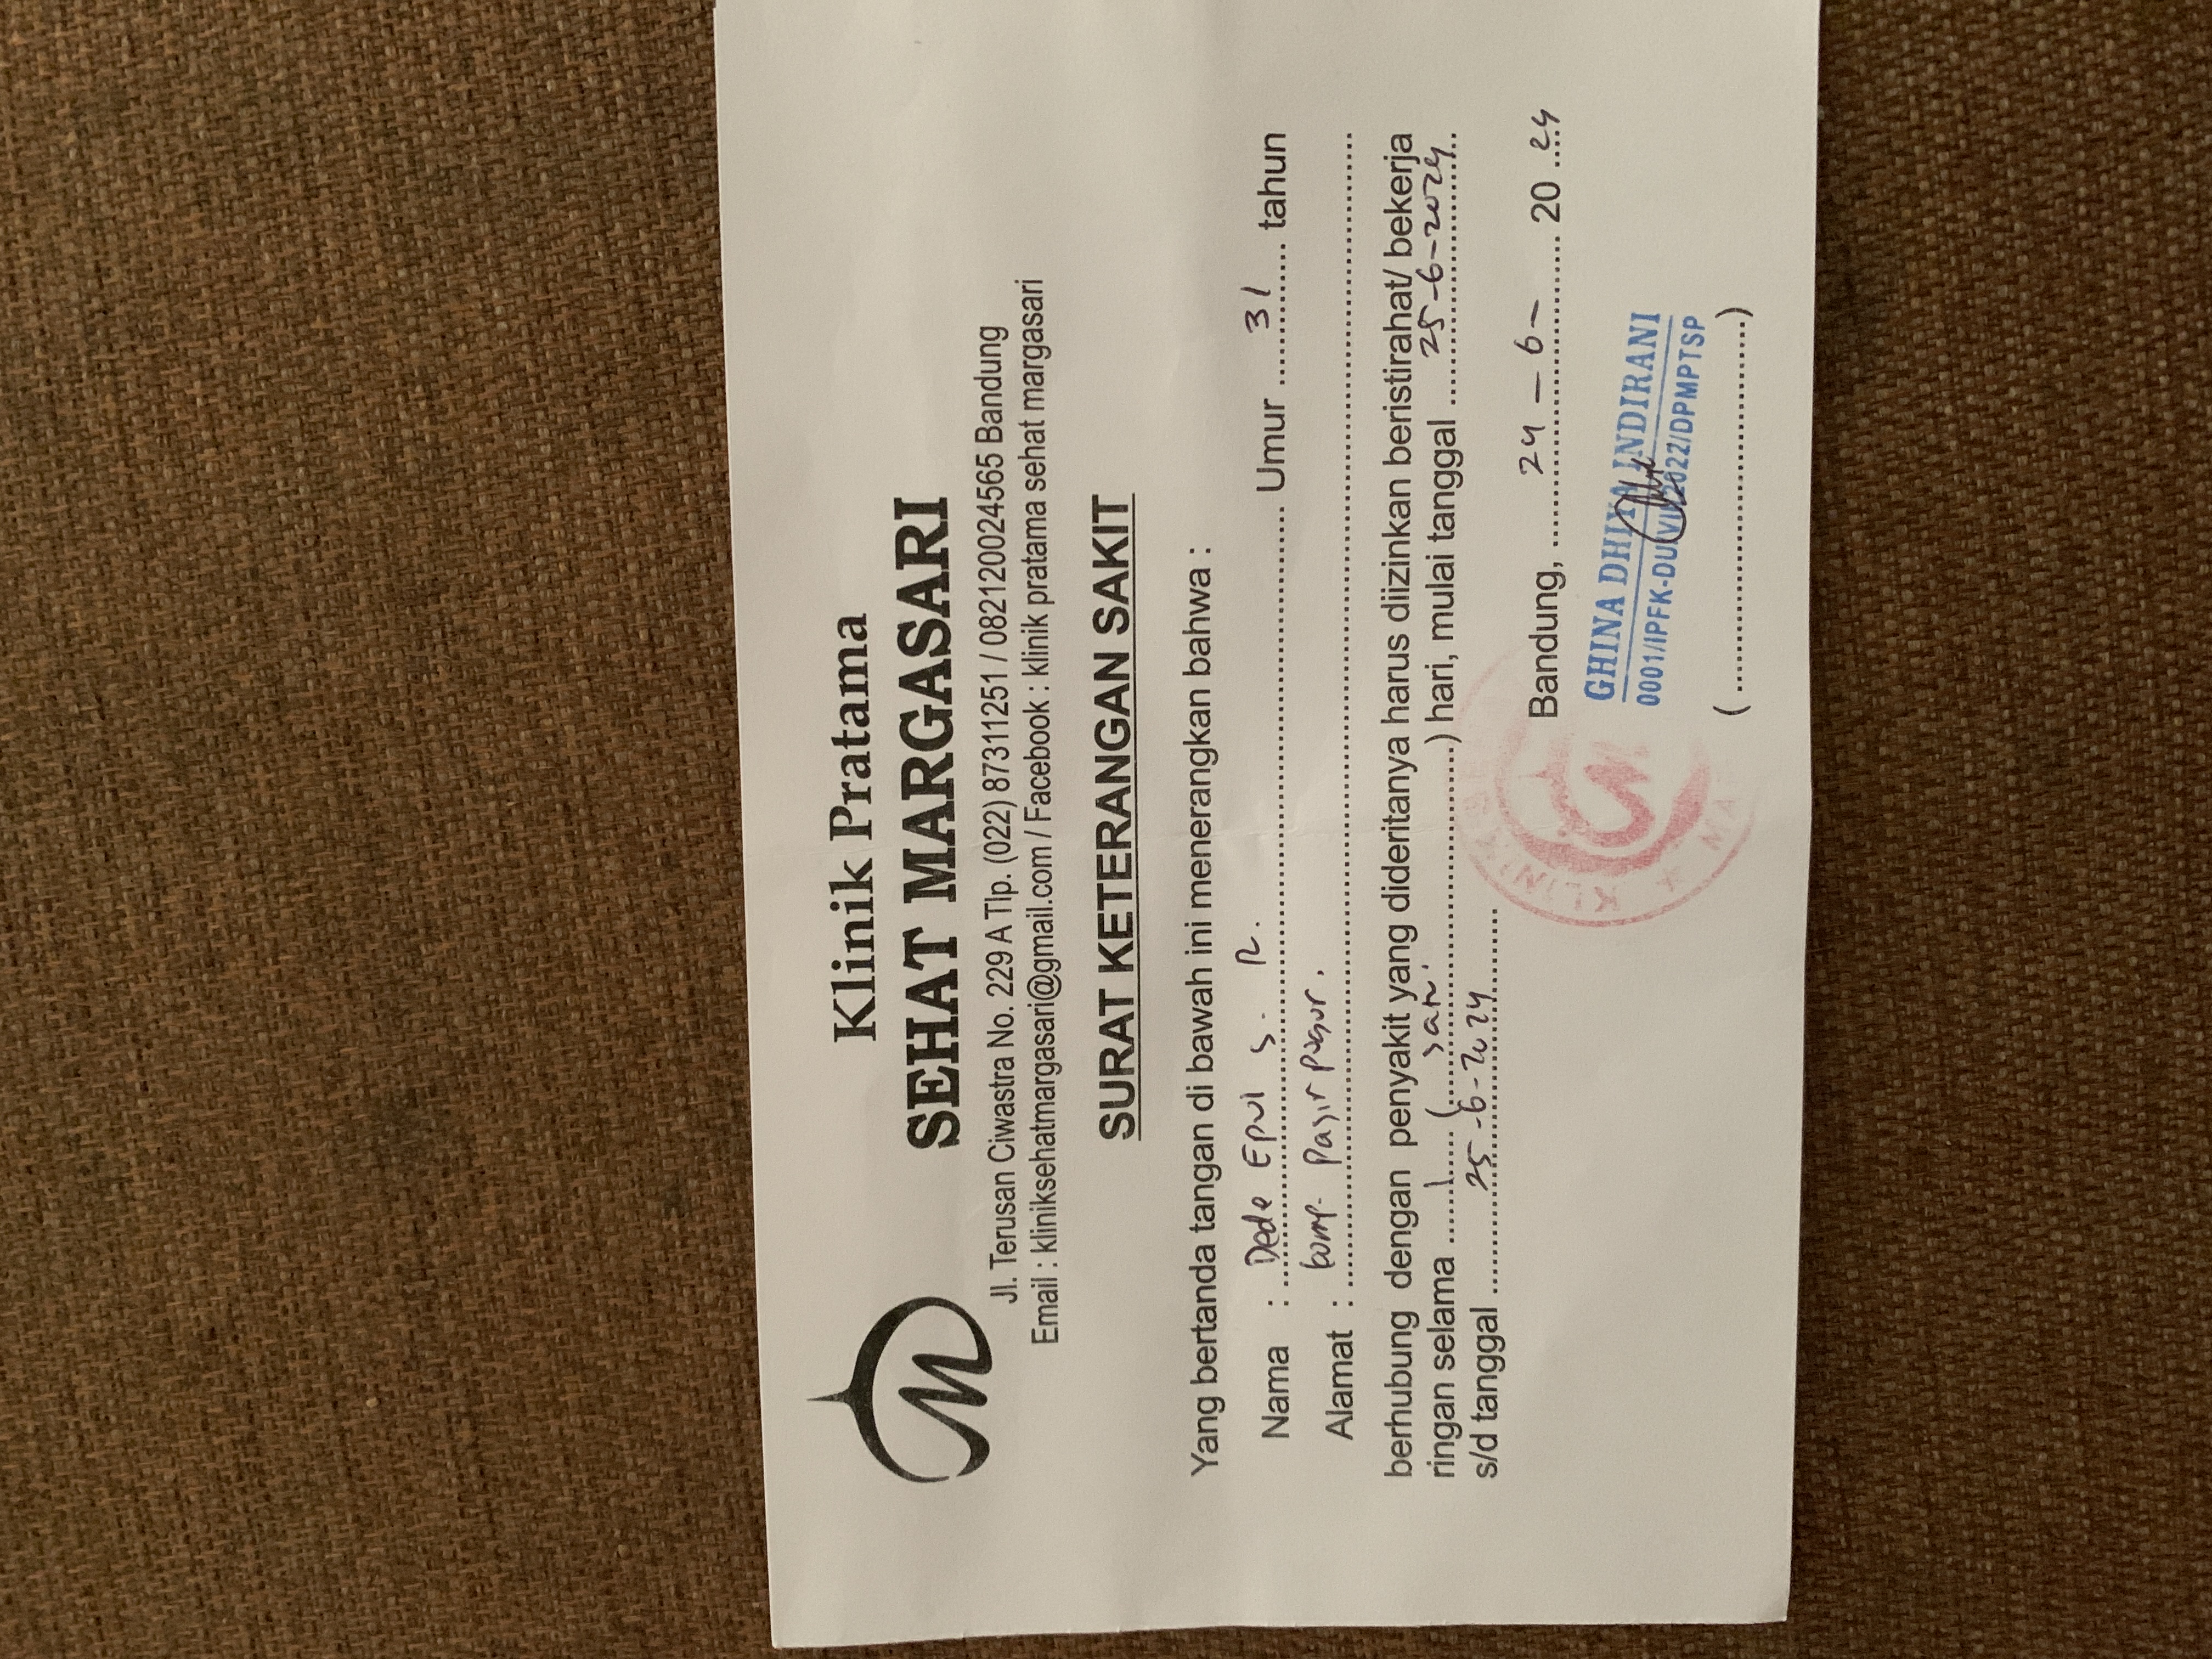 Klinik Pratama
SEHAT MARGASARI
Jl. Terusan Ciwastra No. 229 A Tlp. (022) 87311251 / 082120024565 Bandung
Email : kliniksehatmargasari@gmail.com / Facebook : klinik pratama sehat margasari
SURAT KETERANGAN SAKIT
Yang bertanda tangan di bawah ini menerangkan bahwa :
Nama : Dede Epul S. R. Umur 31 tahun
Alamat : komp. Pasir
berhubung dengan penyakit yang dideritanya harus diizinkan beristirahat/ bekerja
ringan selama 1 (satu) hari, mulai tanggal 25-6-2024
s/d tanggal 25-6-2024
Bandung, 24-6- 2024
KLINIK SE
MA
GHINA DHIYA INDIRANI
0001/IPFK-DU/VII/2022/DPMPTSP